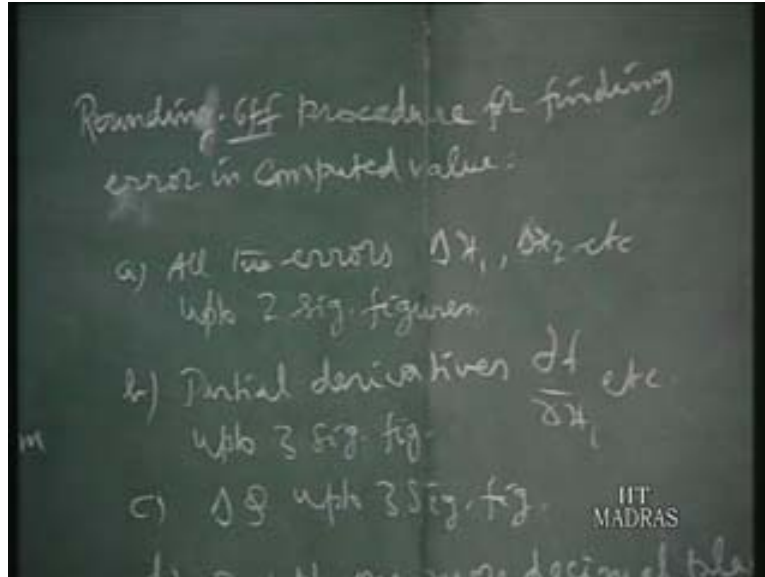 Rounding-off procedure for finding
error in computed value:
a) All the errors Δx₁, Δx₂ etc
upto 2 sig. figures
b) Partial derivatives ∂f/∂x₁ etc.
upto 3 sig. fig.
m
c) ΔQ upto 3 Sig. fig.
IIT
MADRAS
d) one more decimal pla